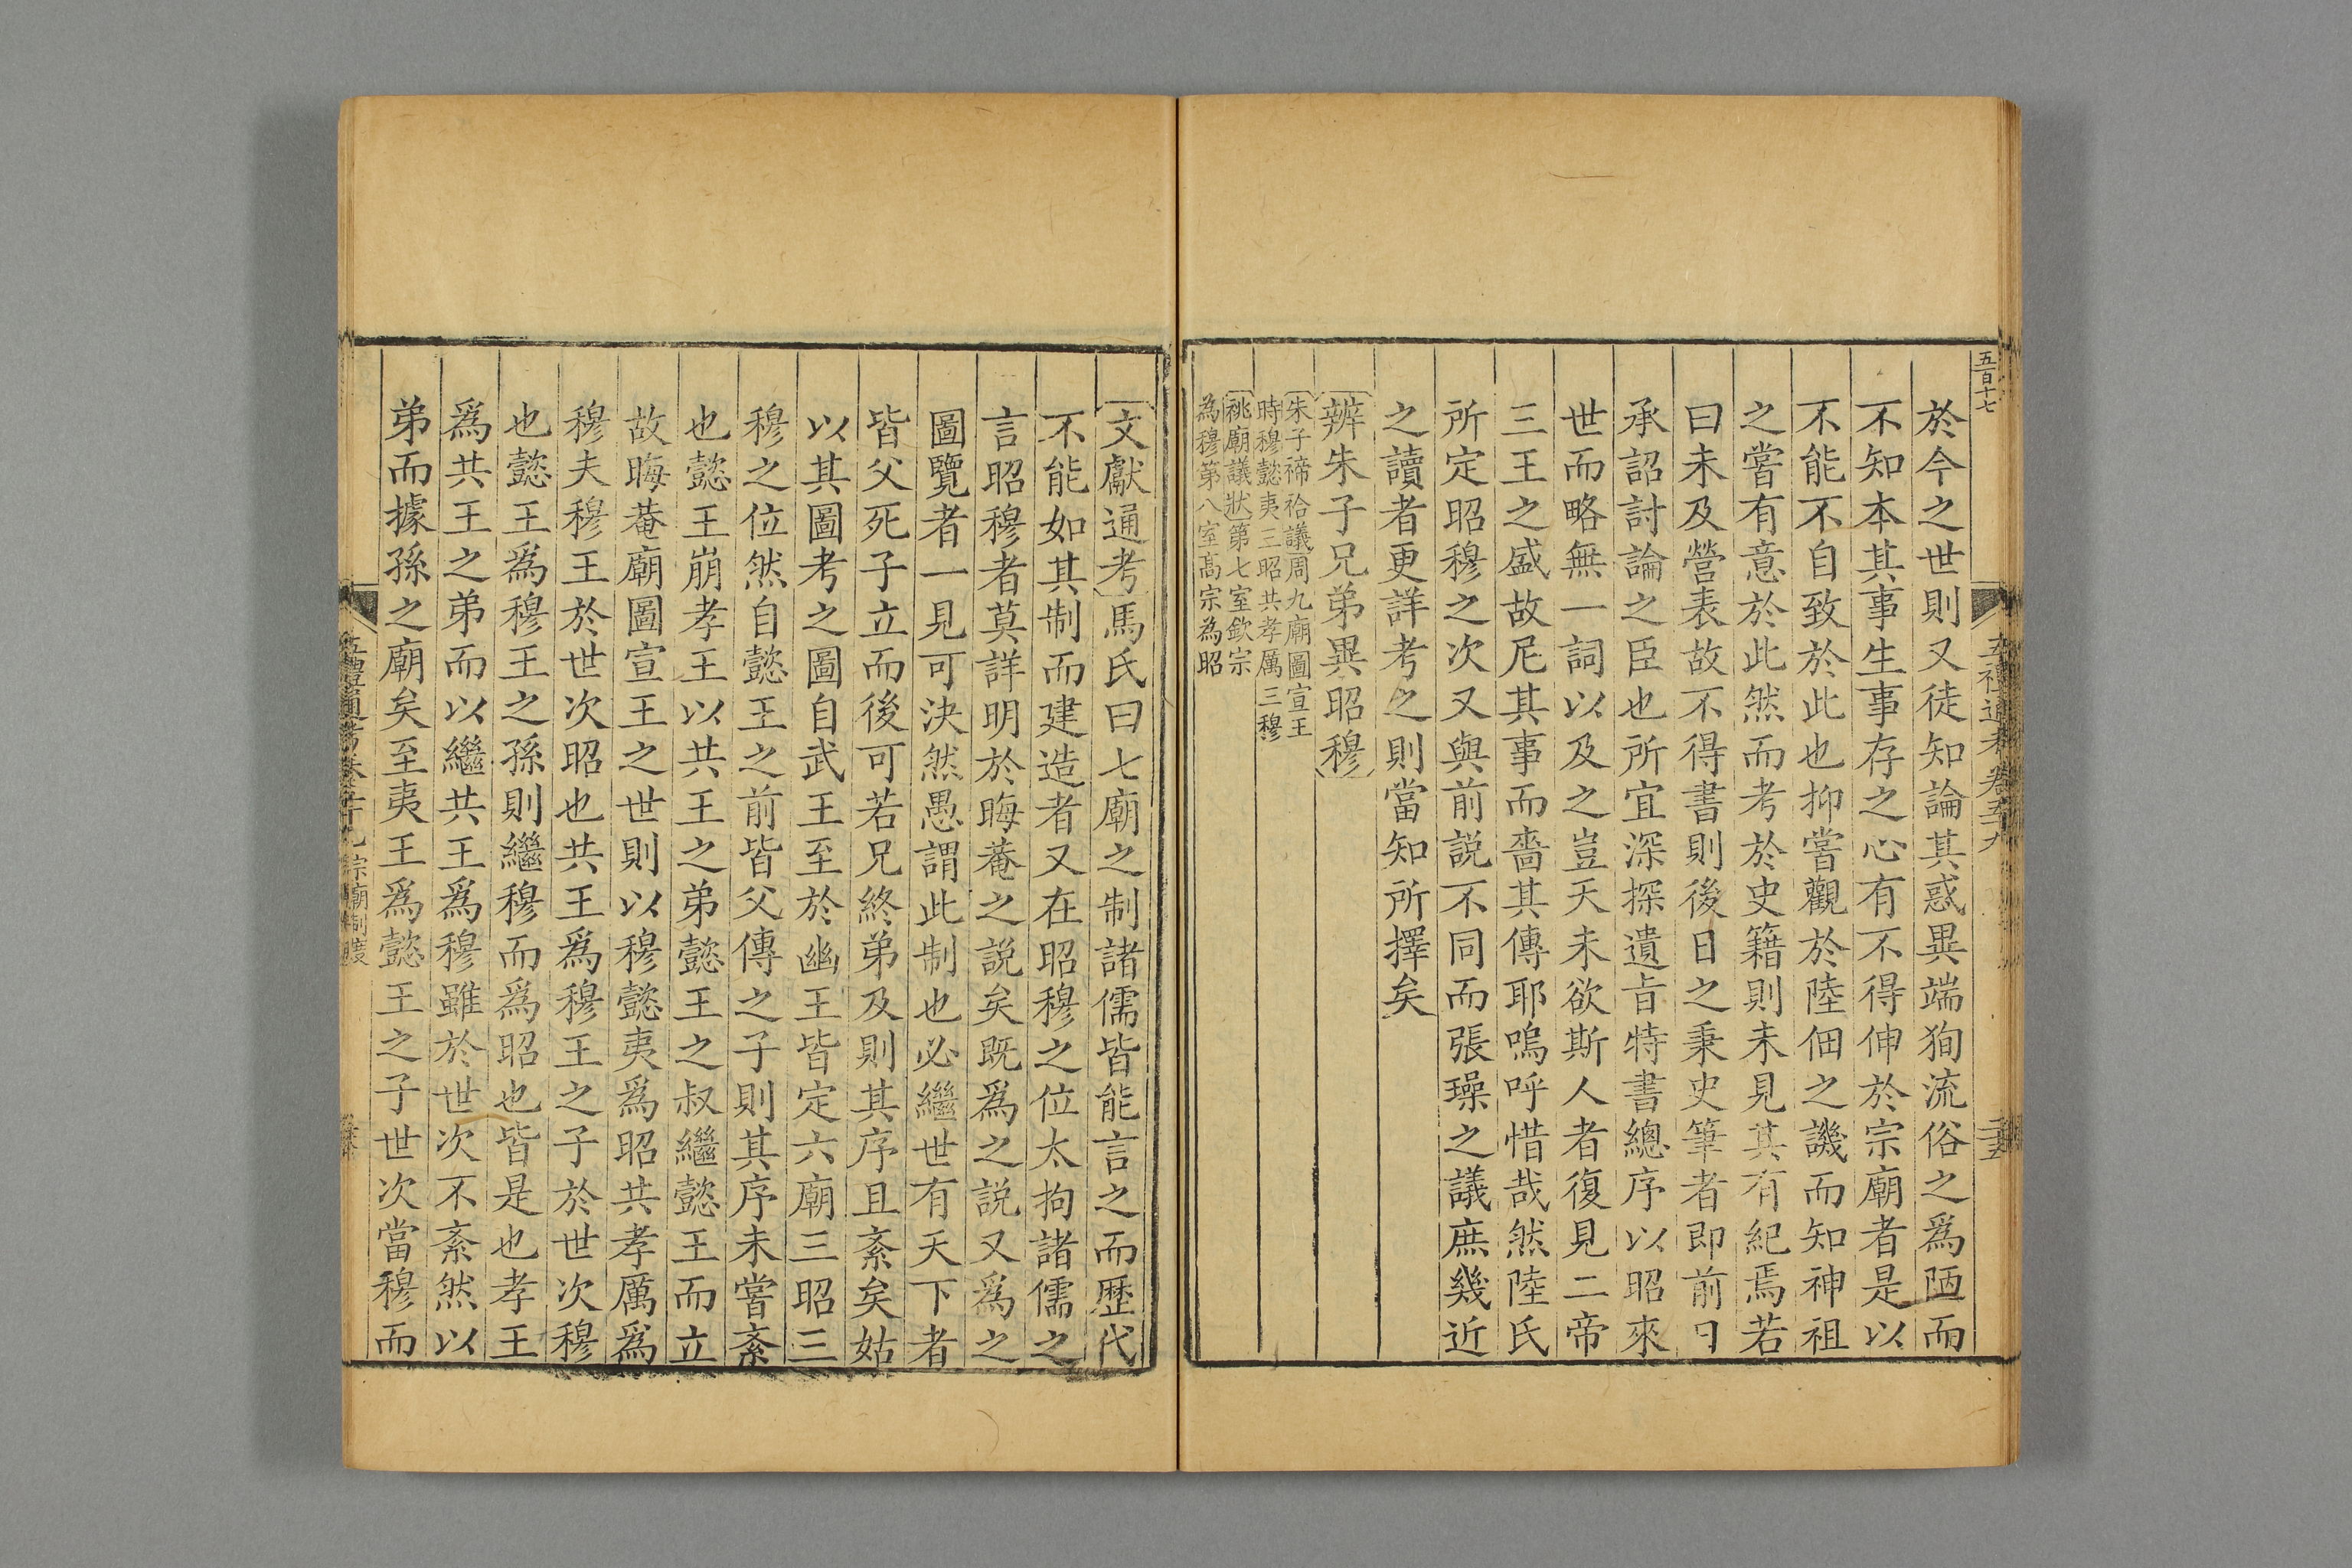 五百十七
於今之世則又徒知論其惑異端狥流俗之爲陋而
不知本其事生事存之心有不得伸於宗廟者是以
不能不自致於此也抑嘗觀於陸佃之譏而知神祖
之嘗有意於此然而考於史籍則未見其有紀焉若
曰未及營表故不得書則後日之秉史筆者即前日
承詔討論之臣也所宜深探遺旨特書總序以昭來
世而略無一詞以及之豈天未欲斯人者復見二帝
三王之盛故尼其事而嗇其傳耶嗚呼惜哉然陸氏
所定昭穆之次又與前説不同而張璪之議庶幾近
之讀者更詳考之則當知所擇矣
辨朱子兄弟異昭穆
朱子禘祫議周九廟圖宣王
時穆懿夷三昭共孝厲三穆
祧廟議狀第七室欽宗
為穆第八室髙宗為昭
文獻通考馬氏曰七廟之制諸儒皆能言之而歷代
不能如其制而建造者又在昭穆之位太拘諸儒之
言昭穆者莫詳明於晦菴之説矣既爲之説又爲之
圖覽者一見可決然愚謂此制也必繼世有天下者
皆父死子立而後可若兄終弟及則其序且紊矣姑
以其圖考之圖自武王至於幽王皆定六廟三昭三
穆之位然自懿王之前皆父傳之子則其序未嘗紊
也懿王崩孝王以共王之弟懿王之叔繼懿王而立
故晦菴廟圖宣王之世則以穆懿夷爲昭共孝厲爲
穆夫穆王於世次昭也共王爲穆王之子於世次穆
也懿王爲穆王之孫則繼穆而爲昭也皆是也孝王
爲共王之弟而以繼共王爲穆雖於世次不紊然以
弟而據孫之廟矣至夷王爲懿王之子世次當穆而